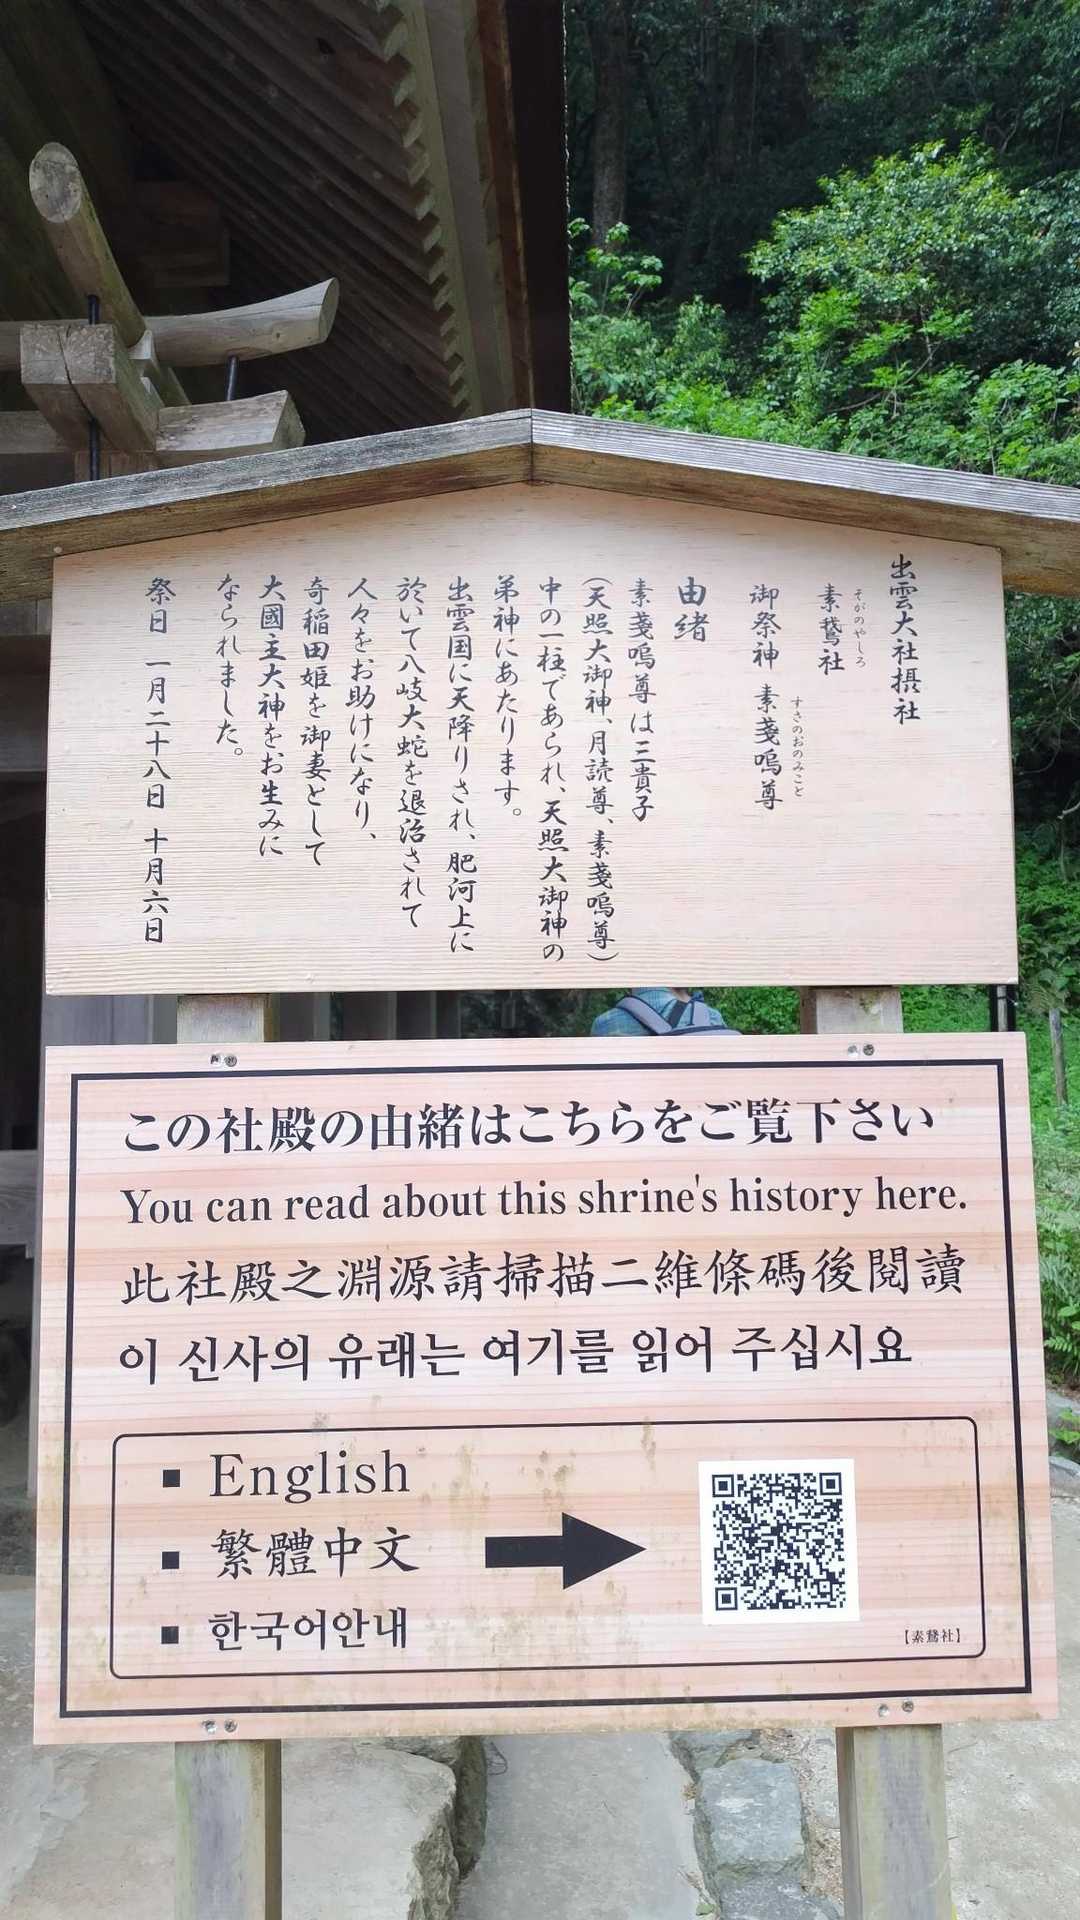 出雲大社摂社
そがのやしろ
素鵞社
御祭神 素戔嗚尊
すさのおのみこと
由緒
素戔嗚尊は三貴子
(天照大御神、月読尊、素戔嗚尊)
中の一柱であられ、天照大御神の
弟神にあたります。
出雲国に天降りされ、肥河上に
於いて八岐大蛇を退治されて
人々をお助けになり、
奇稲田姫を御妻として
大國主大神をお生みに
なられました。
祭日 一月二十八日 十月六日
この社殿の由緒はこちらをご覧下さい
You can read about this shrine's history here.
此社殿之淵源請掃描二維條碼後閱讀
이 신사의 유래는 여기를 읽어 주십시요
▪ English
▪ 繁體中文
▪ 한국어안내
【素鵞社】